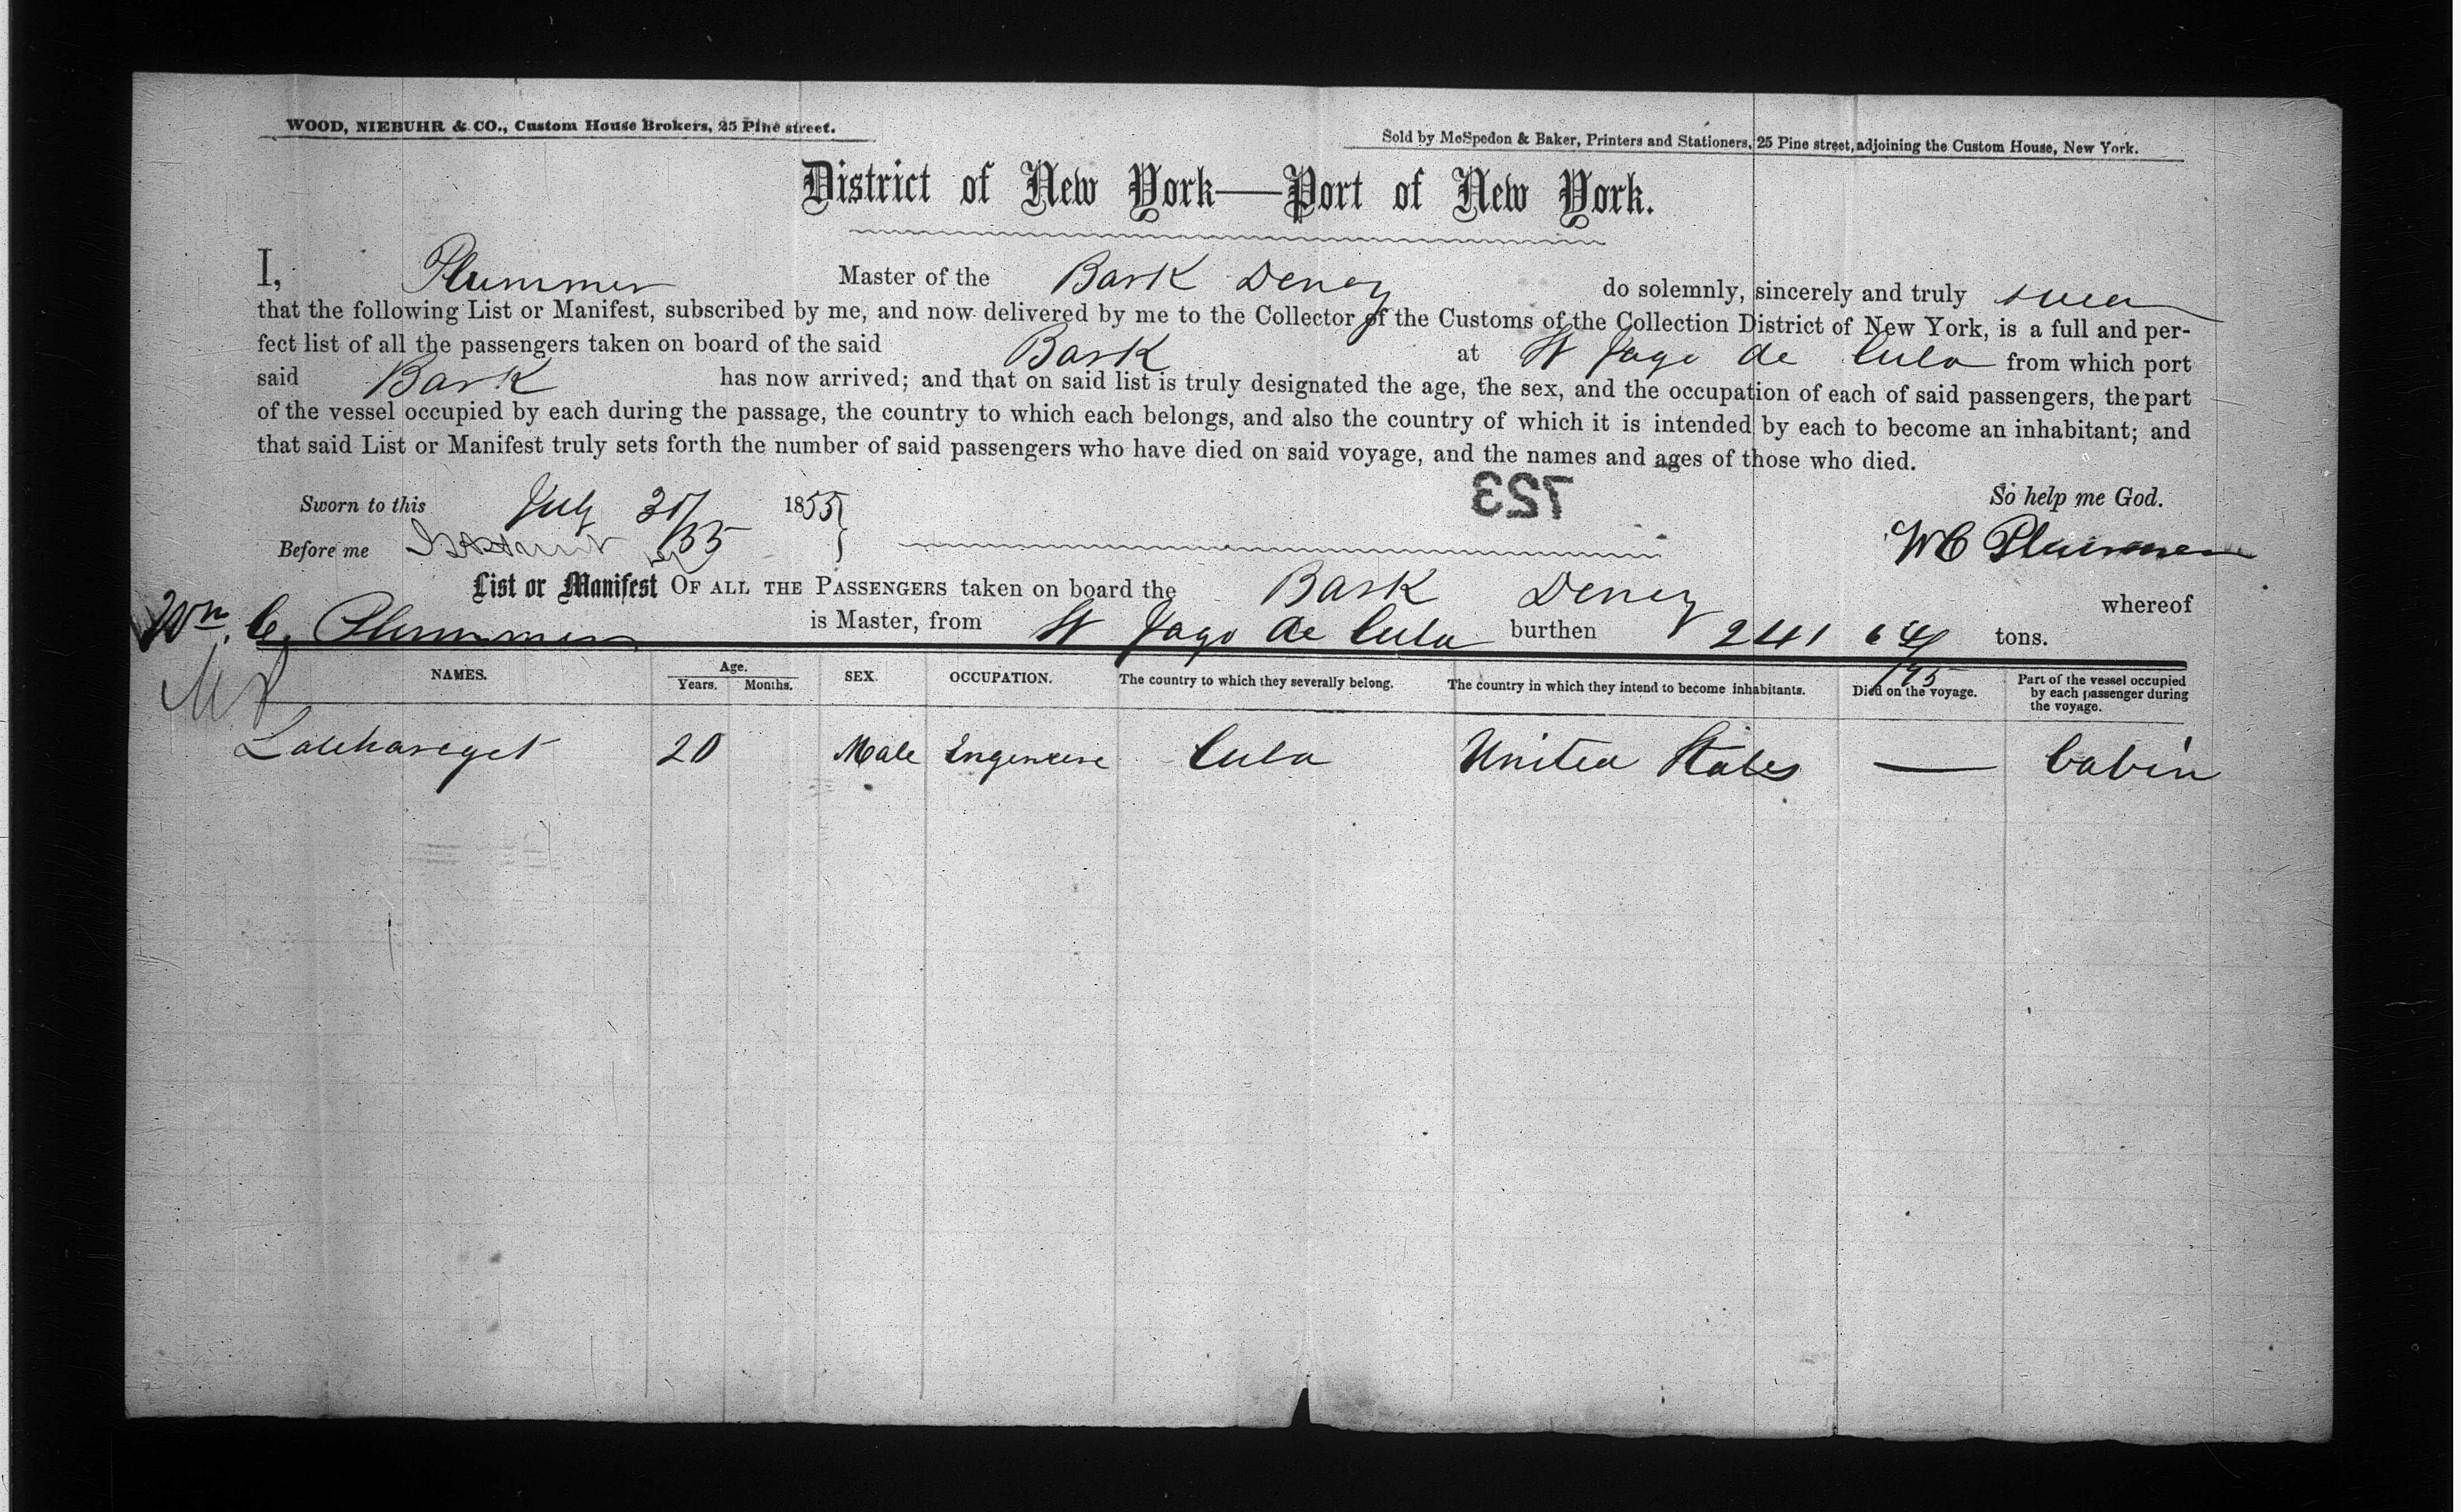 WOOD, NIEBUHR & CO., Custom House Brokers, 25 Pine street.
Sold by McSpedon & Baker, Printers and Stationers, 25 Pine street, adjoining the Custom House, New York.
District of New York—Port of New York.
I, Plummer Master of the Bark do solemnly, sincerely and truly swear
that the following List or Manifest, subscribed by me, and now delivered by me to the Collector of the Customs of the Collection District of New York, is a full and per-
fect list of all the passengers taken on board of the said Bark at St Jago de Cuba from which port
said Bark has now arrived; and that on said list is truly designated the age, the sex, and the occupation of each of said passengers, the part
of the vessel occupied by each during the passage, the country to which each belongs, and also the country of which it is intended by each to become an inhabitant; and
that said List or Manifest truly sets forth the number of said passengers who have died on said voyage, and the names and ages of those who died.
723
Sworn to this July 31 1855 So help me God.
Before me W C Plummer
List or Manifest OF ALL THE PASSENGERS taken on board the Bark whereof
Wm. C. Plummer is Master, from St Jago de Cuba burthen 241 64/95 tons.
NAMES. Age. Years. Months. SEX. OCCUPATION. The country to which they severally belong. The country in which they intend to become inhabitants. Died on the voyage. Part of the vessel occupied by each passenger during the voyage.
20 Male Cuba United States — Cabin